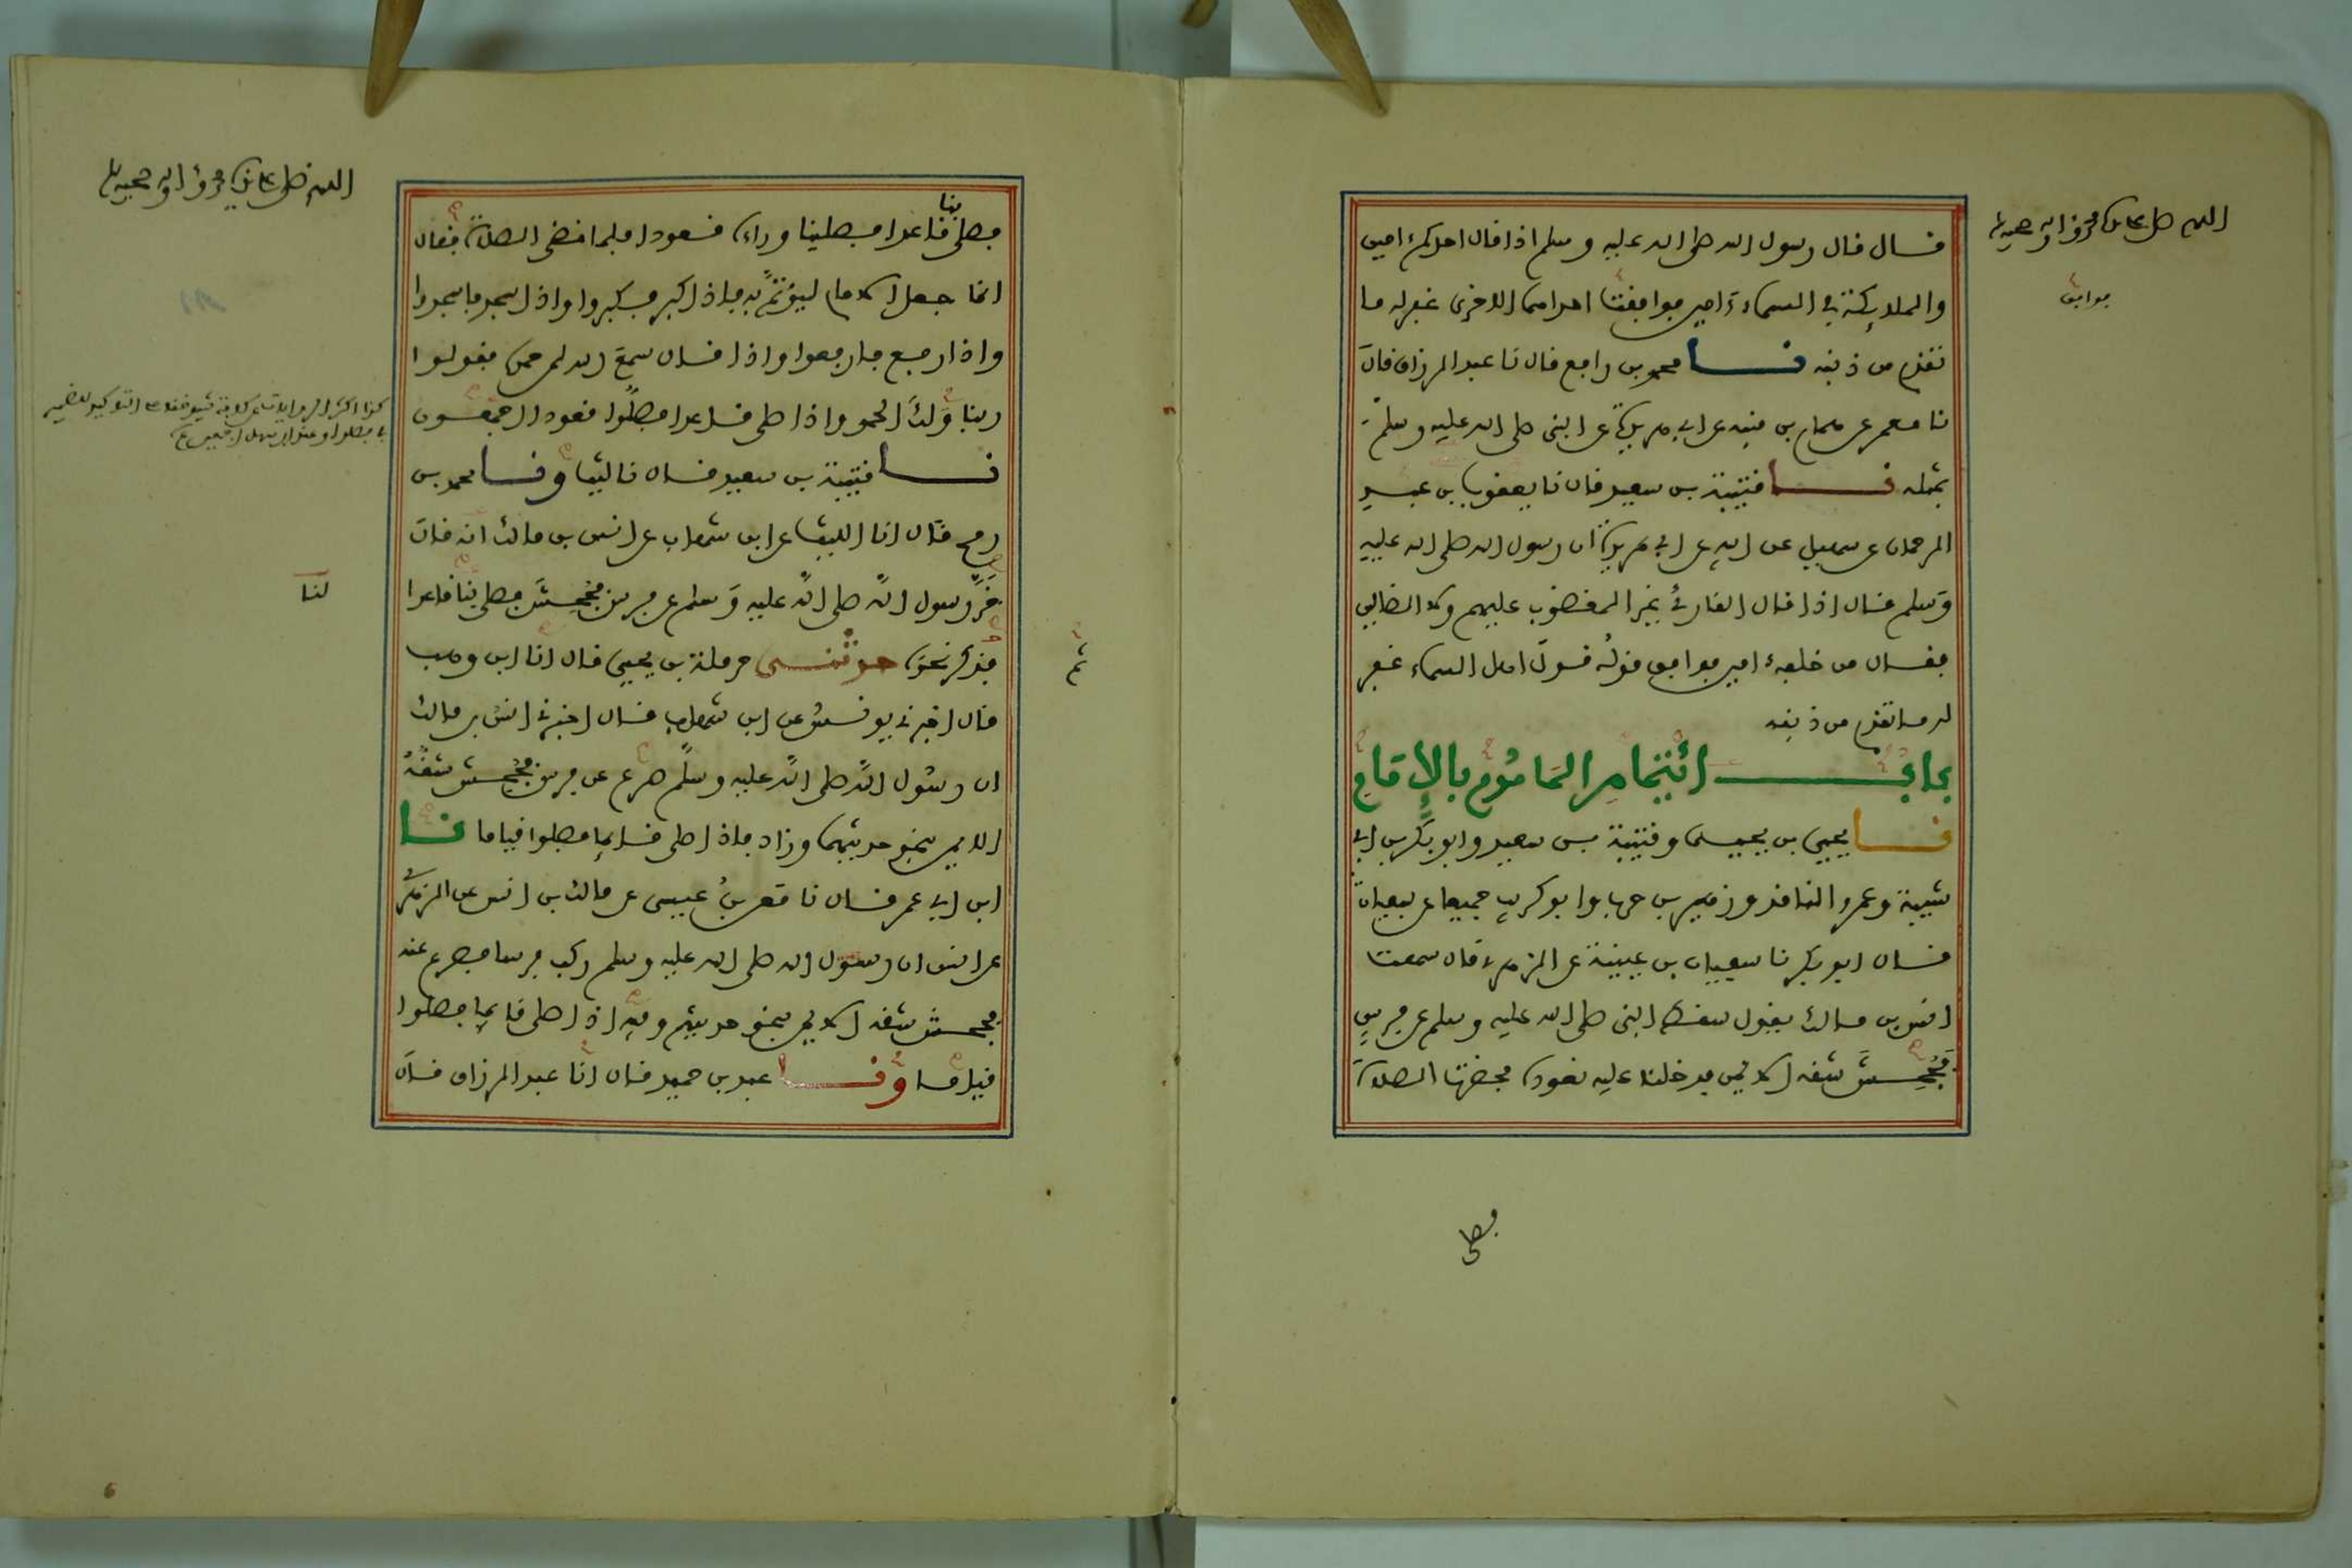 اللهم صل على سيدنا محمد وآله وصحبه
قال قال رسول الله صلى الله عليه وسلم اذا قال احدكم ءامين
والملايكة في السماء ءامين فوافقت احداهما الاخرى غفر له ما
فوافق
تقدم من ذنبه نا محمد بن رافع قال نا عبد الرزاق قال
نا معمر عن همام بن منبه عن ابي هريرة عن النبي صلى الله عليه وسلم
بمثله نا قتيبة بن سعيد قال نا يعقوب بن عبد
الرحمان عن سهيل عن ابيه عن ابي هريرة ان رسول الله صلى الله عليه
وسلم قال اذا قال القارئ غير المغضوب عليهم ولا الضالين
فقال من خلفه ءامين فوافق قوله قول اهل السماء غفر
له ما تقدم من ذنبه
باب ائتمام المأموم بالإمام
نا يحيى بن يحيى وقتيبة بن سعيد وابو بكر بن ابي
شيبة وعمرو الناقد وزهير بن حرب وابو كريب جميعا عن سفيان
قال ابو بكر نا سفيان بن عيينة عن الزهري قال سمعت
انس بن مالك يقول سقط النبي صلى الله عليه وسلم عن فرس
فجُحِشَ شقه الايمن فدخلنا عليه نعوده فحضرت الصلاة
فصلى
اللهم صل على سيدنا محمد وآله وصحبه
فصلى بنا قاعدا فصلينا وراءه قعودا فلما قضى الصلاة فقال
انما جعل الامام ليؤتمَّ به فاذا كبر فكبروا واذا سجد فاسجدوا
واذا رفع فارفعوا واذا قال سمع الله لمن حمده فقولوا
ربنا ولك الحمد واذا صلى قاعدا فصلُّوا قعودا اجمعون
نا قتيبة بن سعيد قال نا ليث ونا محمد بن
رمح قال انا الليث عن ابن شهاب عن انس بن مالك انه قال
خرَّ رسول الله صلى الله عليه وسلم عن فرس فجُحِشَ فصلى بنا قاعدا
لنا
ثم
فذكر نحوه حدثني حرملة بن يحيى قال انا ابن وهب
قال اخبرني يونس عن ابن شهاب قال اخبرني انس بن مالك
ان رسول الله صلى الله عليه وسلم صرع عن فرس فجُحِش شقُّه
الايمن بنحو حديثهما وزاد فاذا صلى قايما فصلوا قياما نا
ابن ابي عمر قال نا معن بنُ عيسى عن مالك بن انس عن الزهري
عن انس ان رسول الله صلى الله عليه وسلم ركب فرسا فصرع عنه
فجحش شقه الايمن بنحو حديثهم وفيه اذا صلى قايما فصلوا
قياما ونا عبد بن حميد قال انا عبد الرزاق قال